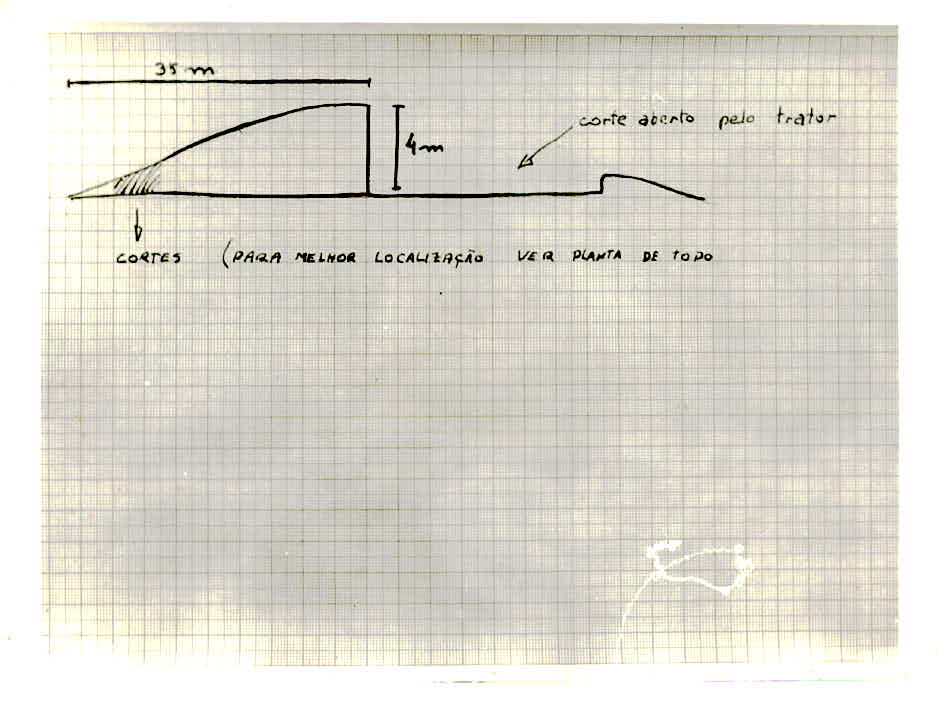 35 m
corte aberto pelo trator
4 m
CORTES (PARA MELHOR LOCALIZAÇÃO VER PLANTA DE TOPO